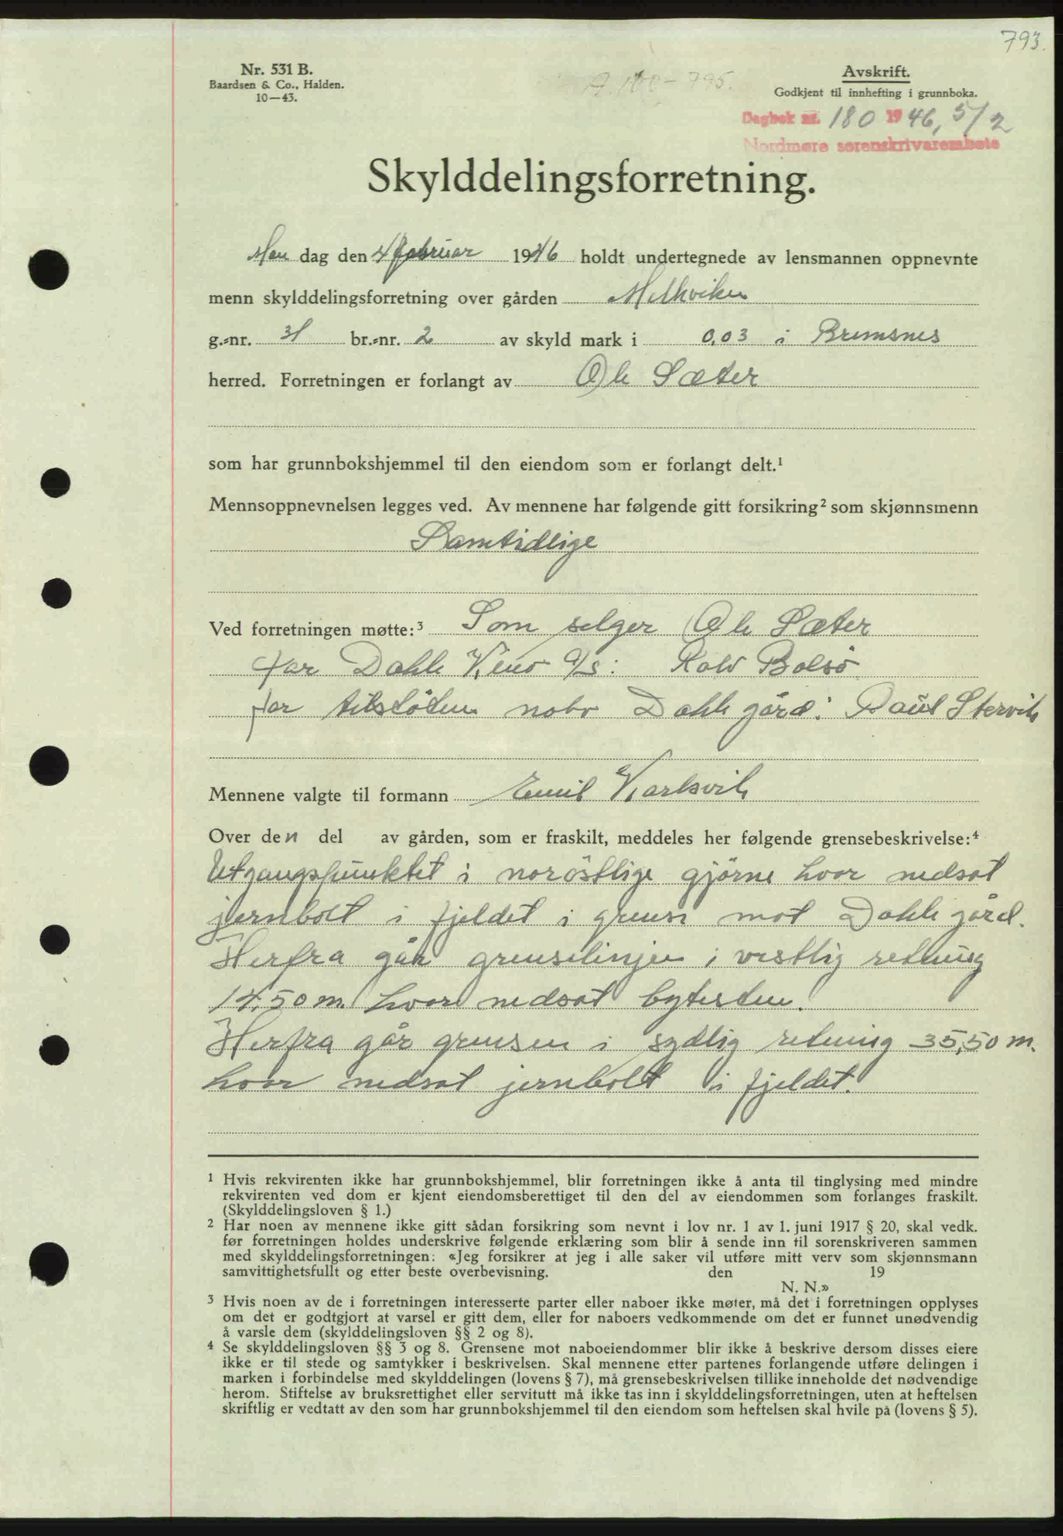 793.
Nr. 531 B.
Baardsen & Co., Halden.
10—43.
Avskrift.
Godkjent til innhefting i grunnboka.
Dagbok nr. 180 1946, 5/2
Nordmøre sorenskriverembete
Skylddelingsforretning.
Man dag den 4 februar 1946 holdt undertegnede av lensmannen oppnevnte
menn skylddelingsforretning over gården Melkviken
g.-nr. 31 br.-nr. 2 av skyld mark i 0,03 i Bremsnes
herred. Forretningen er forlangt av Ole Sæter
som har grunnbokshjemmel til den eiendom som er forlangt delt.¹
Mennsoppnevnelsen legges ved. Av mennene har følgende gitt forsikring² som skjønnsmenn
Samtidlige
Ved forretningen møtte:³ Som selger Ole Sæter
for Dahle Kino A/S: Rolv Bolsö
for tilstöten nabo Dahle gård: Paul Stervik
Mennene valgte til formann Emil Karlsvik
Over den del av gården, som er fraskilt, meddeles her følgende grensebeskrivelse:⁴
Utgangspunktet i noröstlige gjörne hvor nedsat
jernbolt i fjeldet i grense mot Dahle gård.
Herfra går grenselinjen i vestlig retning
14,50 m. hvor nedsat bytesten.
Herfra går grensen i sydlig retning 35,50 m.
hvor nedsat jernbolt i fjeldet.
¹ Hvis rekvirenten ikke har grunnbokshjemmel, blir forretningen ikke å anta til tinglysing med mindre
rekvirenten ved dom er kjent eiendomsberettiget til den del av eiendommen som forlanges fraskilt.
(Skylddelingsloven § 1.)
² Har noen av mennene ikke gitt sådan forsikring som nevnt i lov nr. 1 av 1. juni 1917 § 20, skal vedk.
før forretningen holdes underskrive følgende erklæring som blir å sende inn til sorenskriveren sammen
med skylddelingsforretningen: «Jeg forsikrer at jeg i alle saker vil utføre mitt verv som skjønnsmann
samvittighetsfullt og etter beste overbevisning. den 19
N. N.»
³ Hvis noen av de i forretningen interesserte parter eller naboer ikke møter, må det i forretningen opplyses
om det er godtgjort at varsel er gitt dem, eller for naboers vedkommende om det er funnet unødvendig
å varsle dem (skylddelingsloven §§ 2 og 8).
⁴ Se skylddelingsloven §§ 3 og 8. Grensene mot naboeiendommer blir ikke å beskrive dersom disses eiere
ikke er til stede og samtykker i beskrivelsen. Skal mennene etter partenes forlangende utføre delingen i
marken i forbindelse med skylddelingen (lovens § 7), må grensebeskrivelsen tillike inneholde det nødvendige
herom. Stiftelse av bruksrettighet eller servitutt må ikke tas inn i skylddelingsforretningen, uten at heftelsen
skriftlig er vedtatt av den som har grunnbokshjemmel til den eiendom som heftelsen skal hvile på (lovens § 5).